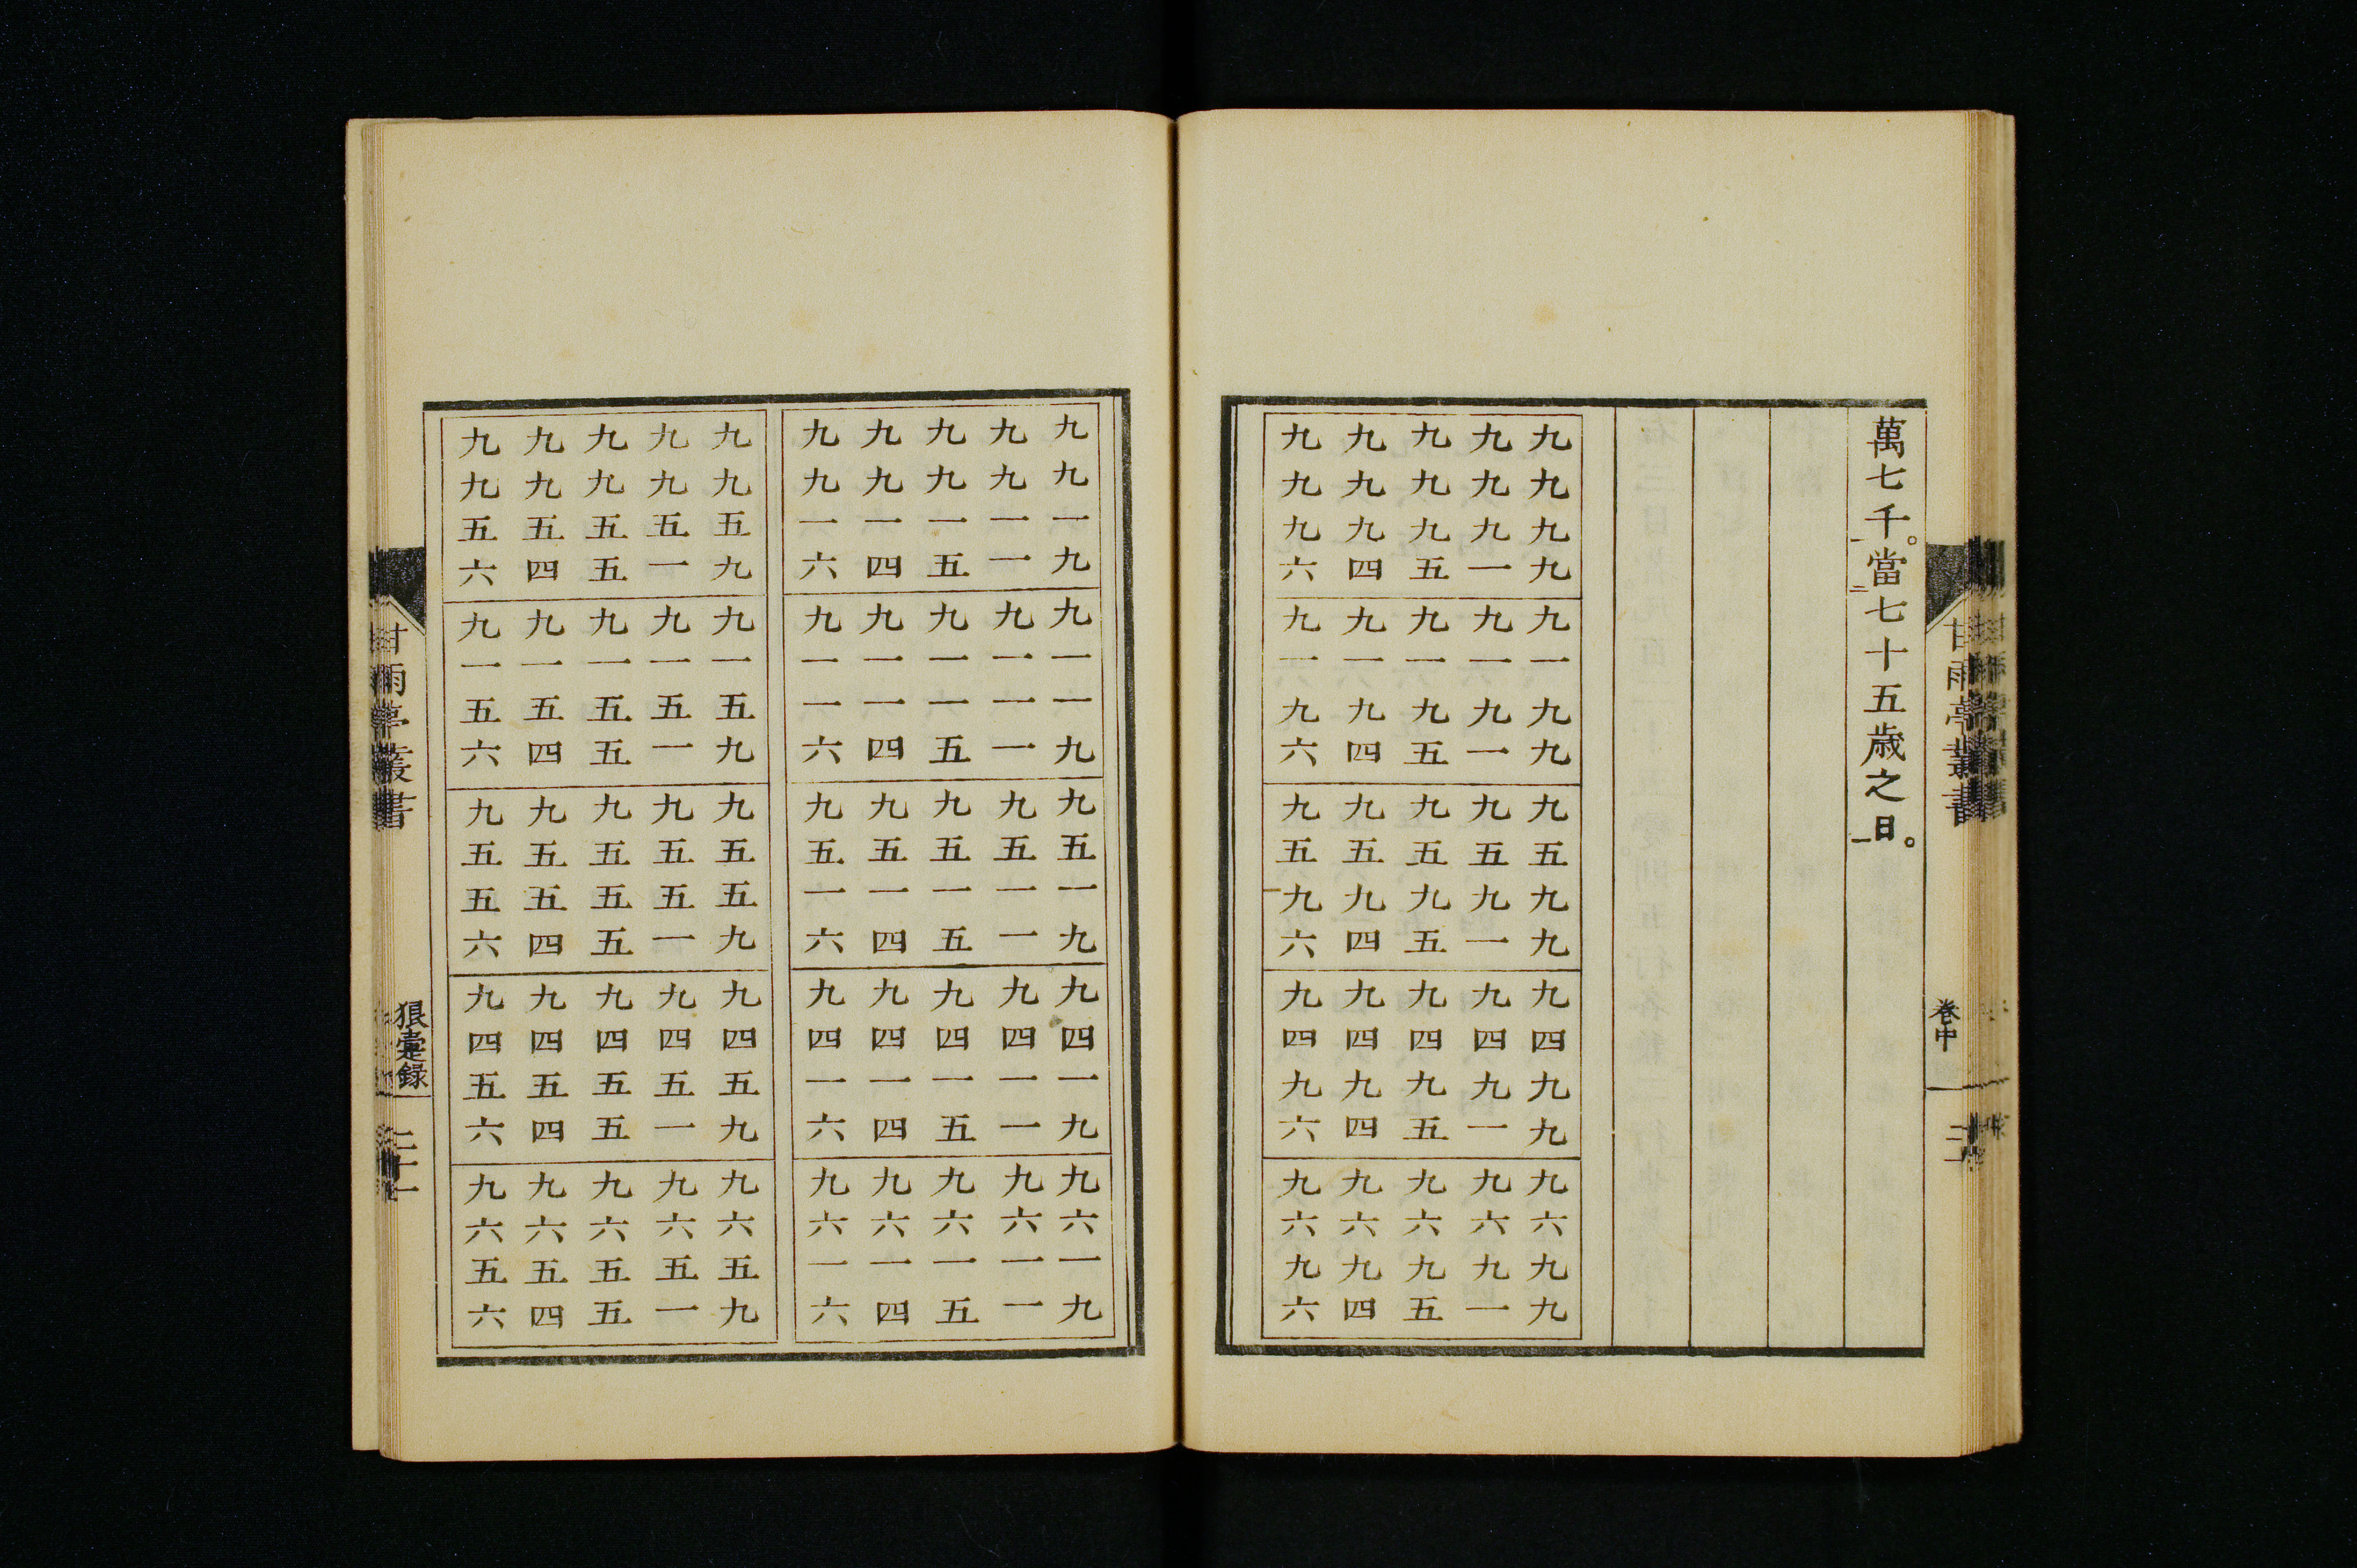 甘雨亭叢書
卷中
萬七千。當七十五歳之日。
九九九九
九九九一
九九九五
九九九四
九九九六
九一九九
九一九一
九一九五
九一九四
九一九六
九五九九
九五九一
九五九五
九五九四
九五九六
九四九九
九四九一
九四九五
九四九四
九四九六
九六九九
九六九一
九六九五
九六九四
九六九六
九九一九
九九一一
九九一五
九九一四
九九一六
九一一九
九一一一
九一一五
九一一四
九一一六
九五一九
九五一一
九五一五
九五一四
九五一六
九四一九
九四一一
九四一五
九四一四
九四一六
九六一九
九六一一
九六一五
九六一四
九六一六
九九五九
九九五一
九九五五
九九五四
九九五六
九一五九
九一五一
九一五五
九一五四
九一五六
九五五九
九五五一
九五五五
九五五四
九五五六
九四五九
九四五一
九四五五
九四五四
九四五六
九六五九
九六五一
九六五五
九六五四
九六五六
甘雨亭叢書
狼疐録